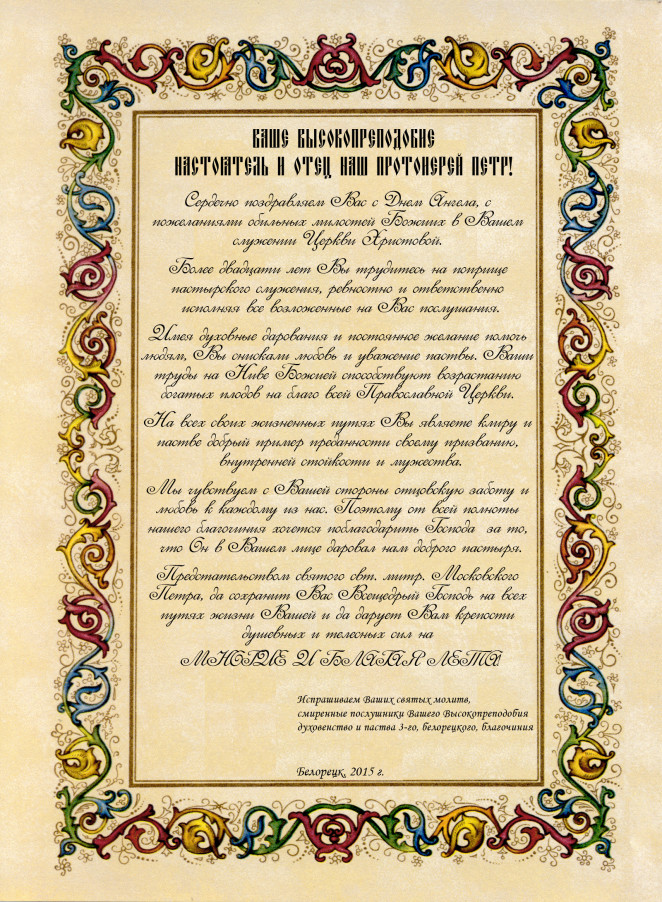 ВАШЕ ВЫСОКОПРЕПОДОБИЕ
НАСТОЯТЕЛЬ И ОТЕЦ НАШ ПРОТОИЕРЕЙ ПЕТР!
Сердечно поздравляем Вас с Днем Ангела, с
пожеланиями обильных милостей Божиих в Вашем
служении Церкви Христовой.
Более двадцати лет Вы трудитесь на поприще
пастырского служения, ревностно и ответственно
исполняя все возложенные на Вас послушания.
Имея духовные дарования и постоянное желание помочь
людям, Вы снискали любовь и уважение паствы. Ваши
труды на Ниве Божией способствуют возрастанию
богатых плодов на благо всей Православной Церкви.
На всех своих жизненных путях Вы являете клиру и
пастве добрый пример преданности своему призванию,
внутренней стойкости и мужества.
Мы чувствуем с Вашей стороны отцовскую заботу и
любовь к каждому из нас. Поэтому от всей полноты
нашего благочиния хочется поблагодарить Господа за то,
что Он в Вашем лице даровал нам доброго пастыря.
Предстательством святого свт. митр. Московского
Петра, да сохранит Вас Всещедрый Господь на всех
путях жизни Вашей и да дарует Вам крепости
душевных и телесных сил на
МНОГИЕ И БЛАГАЯ ЛЕТА!
Испрашиваем Ваших святых молитв,
смиренные послушники Вашего Высокопреподобия
духовенство и паства 3-го, белорецкого, благочиния
Белорецк, 2015 г.